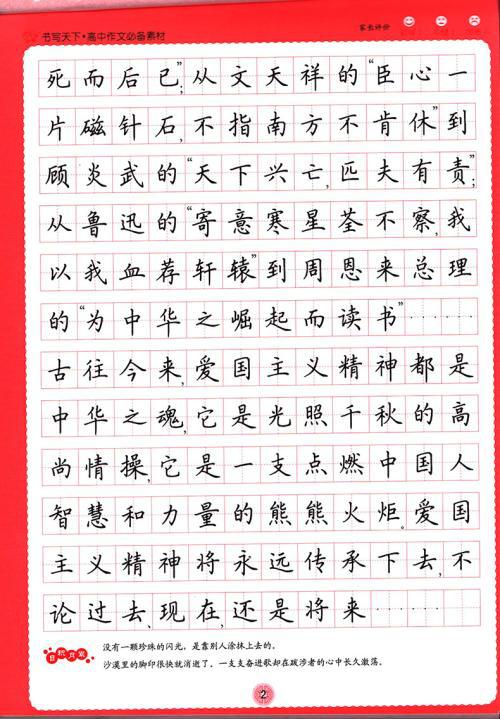 书写天下·高中作文必备素材
家长评价
死而后已”；从文天祥的“臣心一
片磁针石，不指南方不肯休”到
顾炎武的“天下兴亡，匹夫有责”；
从鲁迅的“寄意寒星荃不察，我
以我血荐轩辕”到周恩来总理
的“为中华之崛起而读书”……
古往今来，爱国主义精神都是
中华之魂，它是光照千秋的高
尚情操，它是一支点燃中国人
智慧和力量的熊熊火炬。爱国
主义精神将永远传承下去，不
论过去、现在，还是将来……
日积月累
没有一颗珍珠的闪光，是靠别人涂抹上去的。
沙漠里的脚印很快就消逝了，一支支奋进歌却在跋涉者的心中长久激荡。
2